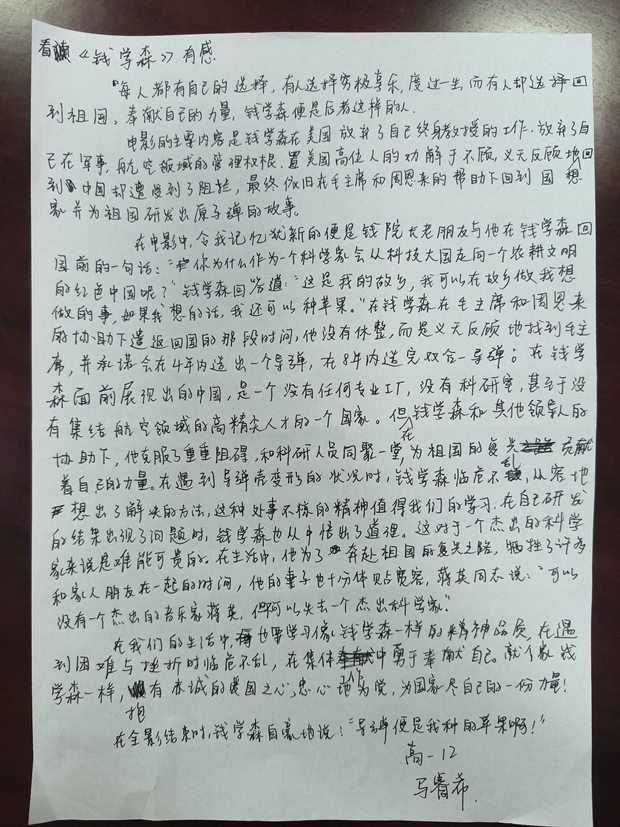 看《钱学森》有感
"每人都有自己的选择,有人选择穷极享乐,度过一生,而有人却选择回
到祖国、奉献自己的力量,钱学森便是后者这样的人.
电影的主要内容是钱学森在美国放弃了自己终身教授的工作.放弃了自
己在军事,航空领域的管理权根.置美国高位人的劝解于不顾,义无反顾地回
到中国却遭受到了阻拦,最终依旧在毛主席和周恩来的帮助下回到国想
家并为祖国研发出原子弹的故事。
在电影中,令我记忆犹新的便是钱院大老朋友与他在钱学森回
国前的一句话:"你为什么作为一个科学家会从科技大国走向一个农耕文明
的红色中国呢?"钱学森回答道:"这是我的故乡,我可以在故乡做我想
做的事,如果我想的话,我还可以种苹果。"在钱学森在毛主席和周恩来
的协助下遣返回国的那段时间,他没有休整,而是义无反顾地找到毛主
席,并承诺会在4年内造出一个导弹,在8年内造完双合一导弹;在钱学
森面前展现出的中国,是一个没有任何专业工厂,没有科研室,甚至于没
有集结航空领域的高精尖人才的一个国家。但在钱学森和其他领导人的
协助下,他克服了重重阻碍,和科研人员同聚一堂,为祖国的复兴贡献
着自己的力量。在遇到导弹壳变形的状况时,钱学森临危不乱,从容地
想出了解决的方法,这种处事不惊的精神值得我们的学习.在自己研发
的结果出现了问题时,钱学森也从中悟出了道理。这对于一个杰出的科学
家来说是难能可贵的。在生活中,他为了奔赴祖国的复兴之路,牺牲了许多
和家人朋友在一起的时间,他的妻子也十分体贴宽容,蒋英同志说:"可以
没有一个杰出的音乐家蒋英,但可以失去一个杰出科学家."
在我们的生活中,也要学习像钱学森一样的精神品质,在遇
到困难与挫折时临危不乱,在集体中勇于奉献自己.就像钱
学森一样,抱有赤诚的爱国之心,忠心地为党,为国家尽自己的一份力量!
在全影结束时,钱学森自豪地说:"导弹便是我种的苹果啊!"
高一12
马睿希.